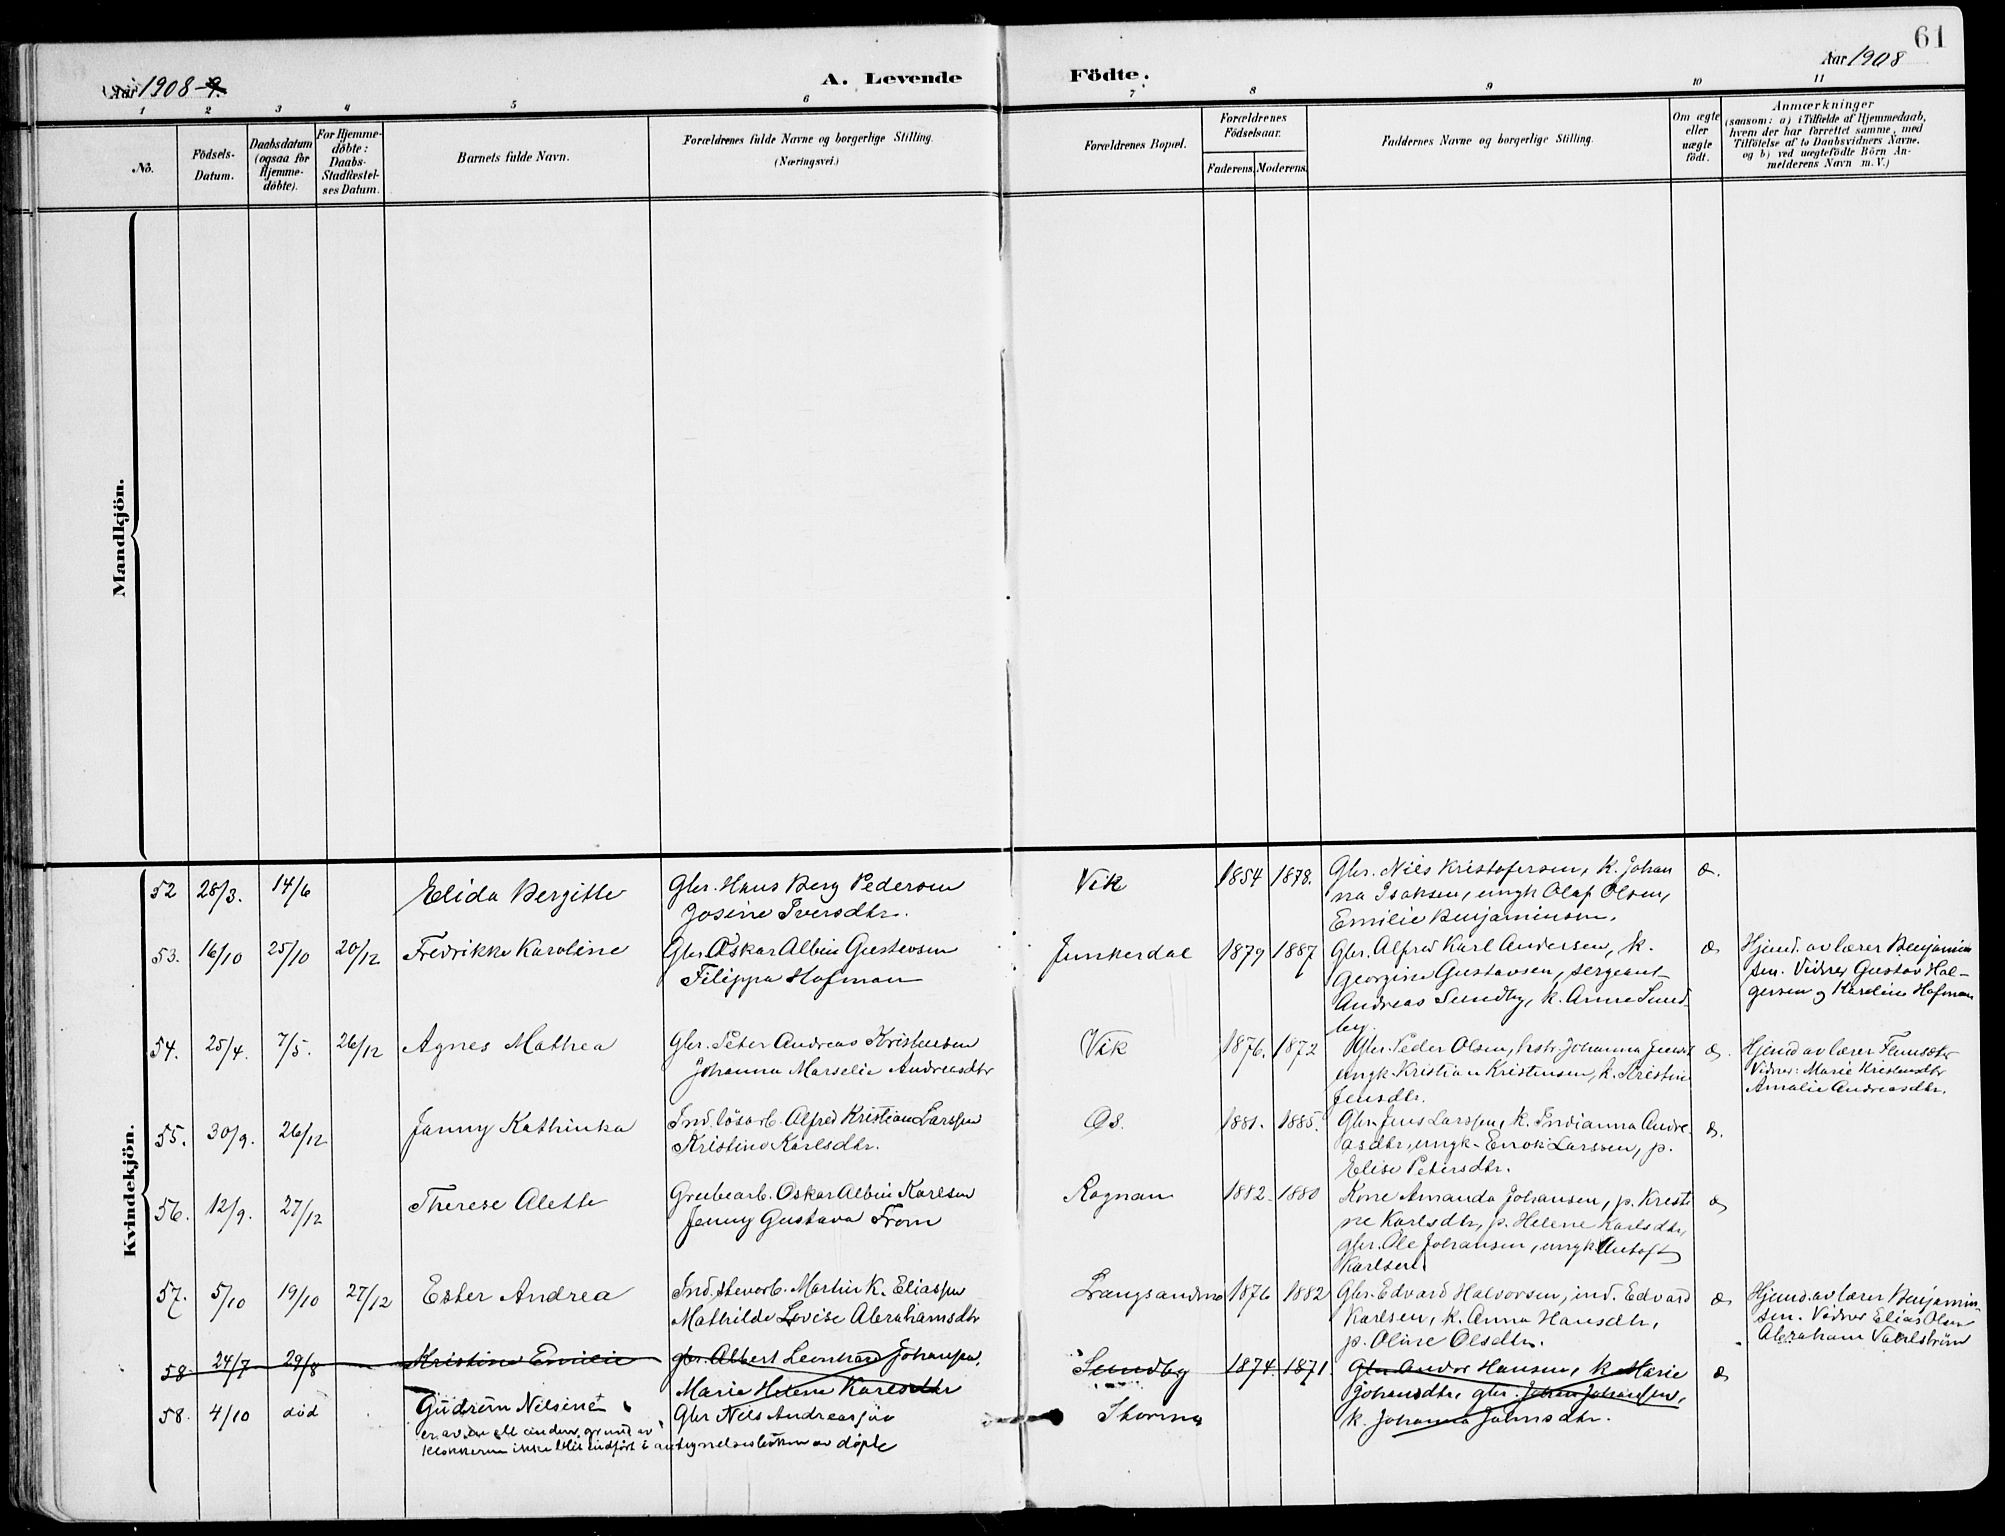 61
Aar 1908-9.
A. Levende
Födte.
Aar 1908
1 2 3 4 5 6 7 8 9 10 11
No.
Födsels-
Datum.
Daabsdatum
(ogsaa for
Hjemme-
döbte).
For Hjemme-
döbte:
Daabs-
Stadfæstel-
ses Datum.
Barnets fulde Navn.
Forældrenes fulde Navne og borgerlige Stilling.
(Næringsvei.)
Forældrenes Bopæl.
Forældrenes
Födselsaar.
Faderens. Moderens.
Faddernes Navne og borgerlige Stilling.
Om ægte
eller
uægte
födt.
Anmærkninger
(saasom: a) i Tilfælde af Hjemmedaab,
hvem der har forrettet samme, med
Tilföielse af to Daabsvidners Navne.
og b) ved uægtefödte Börn An-
melderens Navn m. V.)
Mandkjön.
Kvindekjön.
52 28/3. 14/6 Elida Bergitte
Gbr. Hans Berg Pedersen
Josine Iversdtr.
Vik 1854 1878.
Gbr. Nils Kristofersen, k. Johan
na Isaksen, ungk Olaf Olsen,
Emilie Benjaminsen.
æ.
53. 16/10 25/10 20/12 Fredrikke Karoline
Gbr. Oskar Albin Gustavsen
Filippa Hofman
Junkerdal 1879 1887
Gbr. Alfred Karl Andersen, k.
Georgine Gustavsen, sergeant
Andreas Sundby, k. Anne Sund
by.
æ
Hjemd. av lærer Benjamin
sen. Vidner Gustav Hol-
gersen og Karoline Hofman
54. 25/4. 7/5. 26/12 Agnes Mathea
Gbr. Peter Andreas Kristensen
Johanna Marselie Andreasdtr
Vik 1876. 1872
Gbr. Peder Olsen, hstr. Johanna
ungk. Kristian Kristensen, k. Kristine
Jensdtr.
æ.
Hjemd av lærer
Vidner: Marie Kristensdtr
Amalie Andreasdtr.
55. 30/9. 26/12 Janny Kathinka
Ind. lösarb. Alfred Kristian Larssen
Kristine Karlsdtr.
Os. 1881. 1885.
Gbr. Jens Larssen, k. Indianna Andre
asdtr, ungk. Enok Larssen, p.
Elise Petersdtr.
æ.
56. 12/9. 27/12 Therese Alette
Grubearb. Oskar Albin Karlsen
Jenny Gustava From
Rognan 1882. 1880
Kone Amanda Johansen, p. Kristi
ne Karlsdtr, p. Helene Karlsdtr,
gbr. Ole Johansen, ungk
Karlsen.
æ
57. 5/10 19/10 27/12 Ester Andrea
Ind. stuvarb. Martin K. Eliassen
Mathilde Lovise Abrahamsdtr
Langsandmo 1876 1882
Gbr. Edvard Halvorsen, ind. Edvard
Karlsen, k. Anna Hansdtr,
p. Oline Olsdtr.
æ
Hjemd. av lærer Benjamin-
sen. Vidner Elias Olsen
Abraham
58 24/7 29/8 Kristine Emilie
gbr. Albert Leonhard Johansen,
Marie Helene Karlsdtr
Sundby 1874. 1871.
Gbr. Andor Hansen, k. Marie
Johansdtr, gbr. Johan Johansen,
k. Johanna Johnsdtr.
æ
58. 4/10 död Gudrun Nilsine †
Gbr Nils Andreassen
Storm
er av en el anden grund av
klokkeren ikke blit indfört i antegnelsesboken av döpte